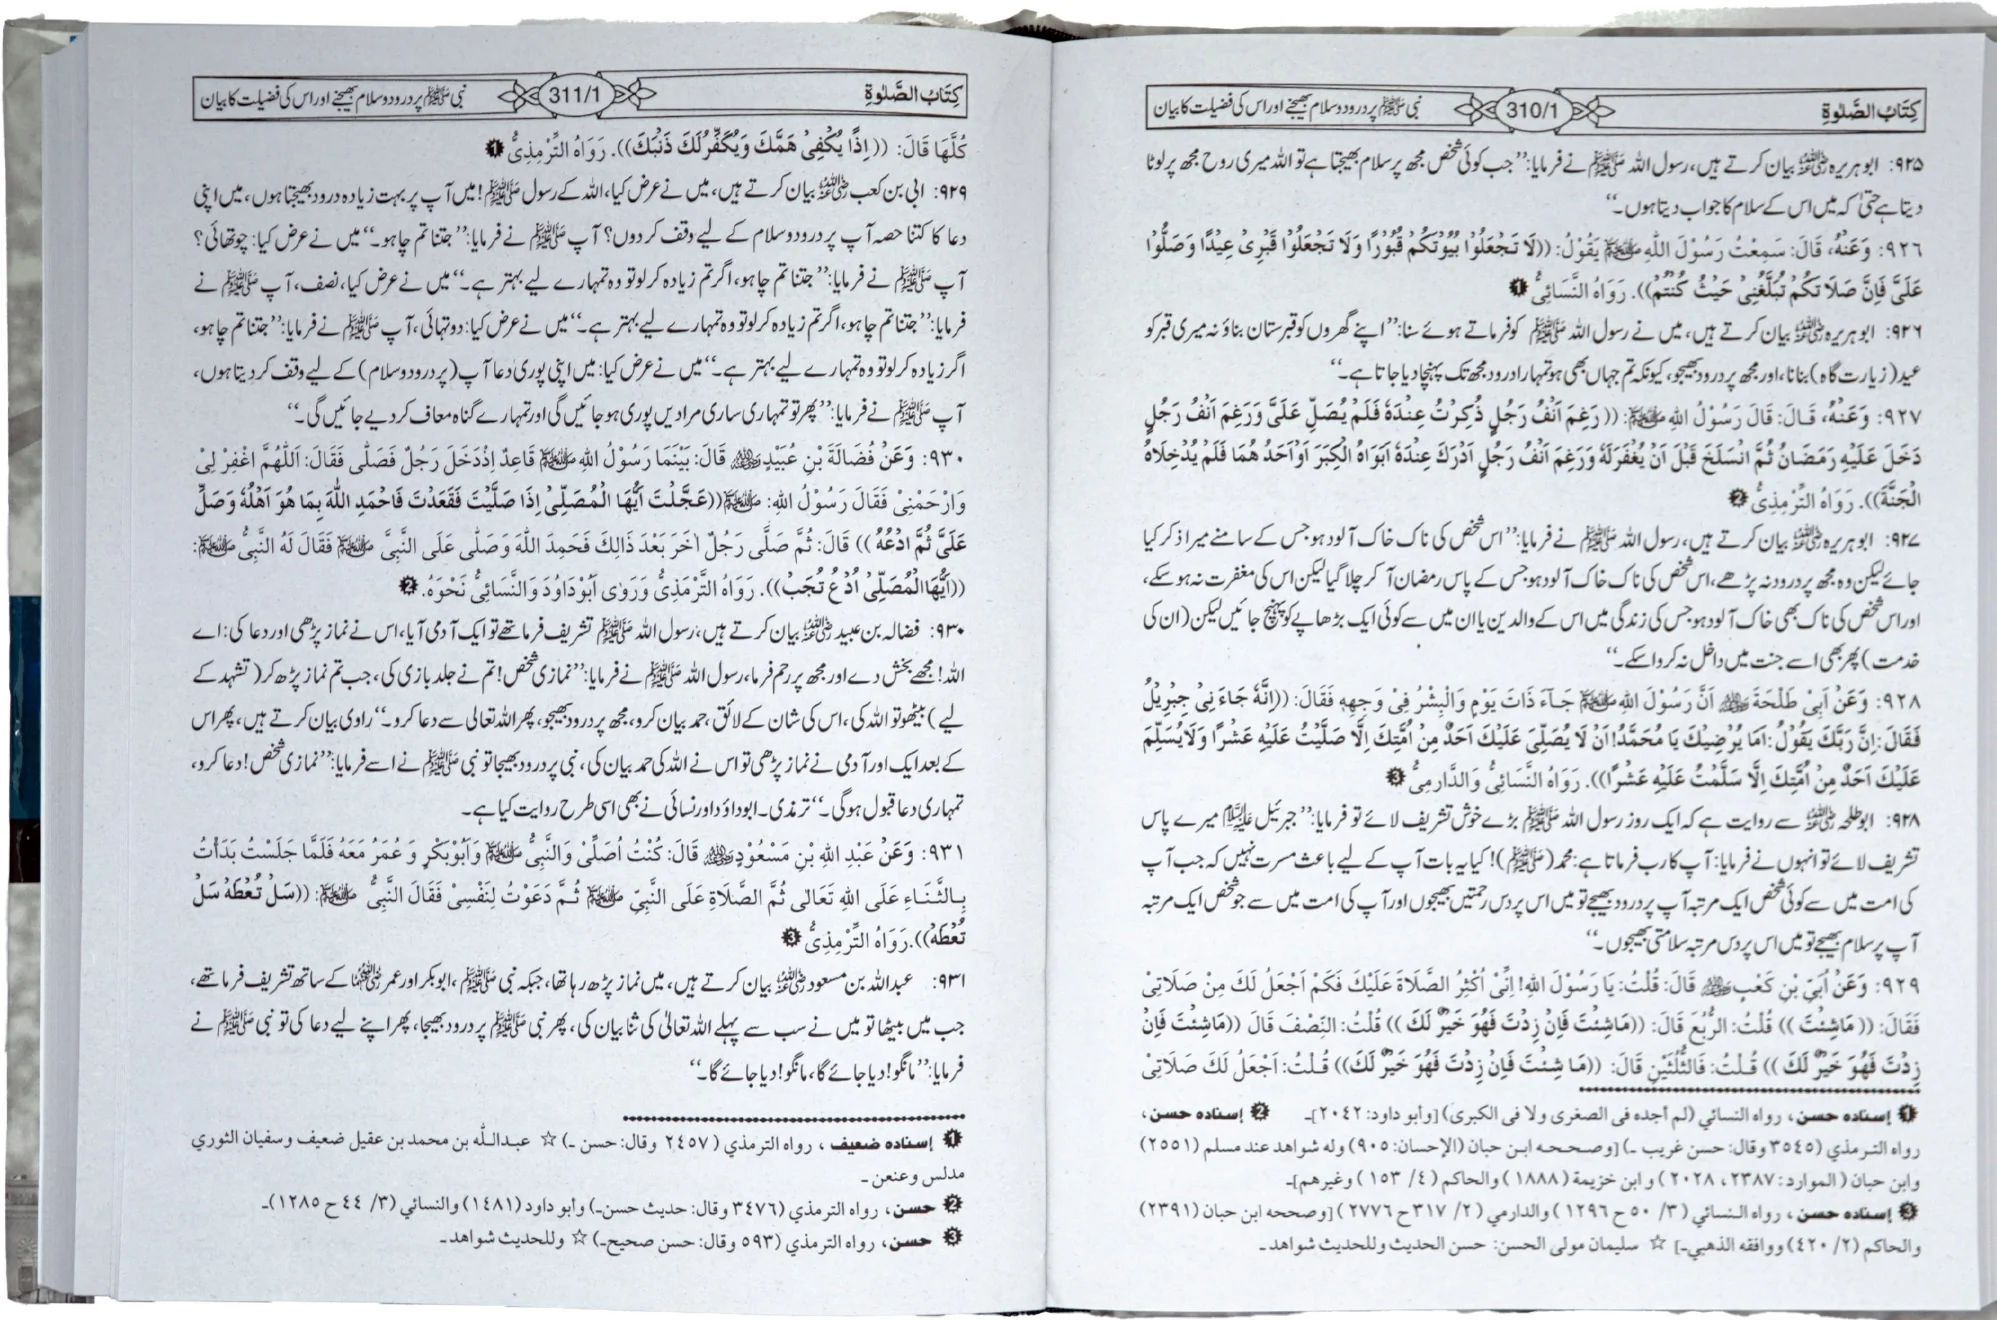 كِتَابُ الصَّلٰوةِ 310/1 نبی ﷺ پر درود و سلام بھیجنے اور اس کی فضیلت کا بیان
۹۲۵: ابو ہریرہ رضی اللہ عنہ بیان کرتے ہیں، رسول اللہ ﷺ نے فرمایا: ’’جب کوئی شخص مجھ پر سلام بھیجتا ہے تو اللہ میری روح مجھ پر لوٹا
دیتا ہے حتیٰ کہ میں اس کے سلام کا جواب دیتا ہوں۔‘‘
٩٢٦: وَعَنْهُ، قَالَ: سَمِعْتُ رَسُوْلَ اللهِ ﷺ يَقُوْلُ: ((لَا تَجْعَلُوْا بُيُوْتَكُمْ قُبُوْرًا وَلَا تَجْعَلُوْا قَبْرِىْ عِيْدًا وَصَلُّوْا
عَلَىَّ فَاِنَّ صَلَاتَكُمْ تُبَلَّغُنِىْ حَيْثُ كُنْتُمْ)). رَوَاهُ النَّسَائِىُّ ❶
۹۲۶: ابو ہریرہ رضی اللہ عنہ بیان کرتے ہیں، میں نے رسول اللہ ﷺ کو فرماتے ہوئے سنا: ’’اپنے گھروں کو قبرستان بناؤ نہ میری قبر کو
عید (زیارت گاہ) بنانا، اور مجھ پر درود بھیجو، کیونکہ تم جہاں بھی ہو تمہارا درود مجھ تک پہنچا دیا جاتا ہے۔‘‘
٩٢٧: وَعَنْهُ، قَالَ: قَالَ رَسُوْلُ اللهِ ﷺ: ((رَغِمَ اَنْفُ رَجُلٍ ذُكِرْتُ عِنْدَهٗ فَلَمْ يُصَلِّ عَلَىَّ وَرَغِمَ اَنْفُ رَجُلٍ
دَخَلَ عَلَيْهِ رَمَضَانُ ثُمَّ انْسَلَخَ قَبْلَ اَنْ يُغْفَرَلَهٗ وَرَغِمَ اَنْفُ رَجُلٍ اَدْرَكَ عِنْدَهٗ اَبَوَاهُ الْكِبَرَ اَوْاَحَدُ هُمَا فَلَمْ يُدْخِلَاهُ
الْجَنَّةَ)). رَوَاهُ التِّرْمِذِىُّ ❷
۹۲۷: ابو ہریرہ رضی اللہ عنہ بیان کرتے ہیں، رسول اللہ ﷺ نے فرمایا: ’’اس شخص کی ناک خاک آلود ہو جس کے سامنے میرا ذکر کیا
جائے لیکن وہ مجھ پر درود نہ پڑھے، اس شخص کی ناک خاک آلود ہو جس کے پاس رمضان آ کر چلا گیا لیکن اس کی مغفرت نہ ہو سکے،
اور اس شخص کی ناک بھی خاک آلود ہو جس کی زندگی میں اس کے والدین یا ان میں سے کوئی ایک بڑھاپے کو پہنچ جائیں لیکن (ان کی
خدمت) پھر بھی اسے جنت میں داخل نہ کروا سکے۔‘‘
٩٢٨: وَعَنْ اَبِىْ طَلْحَةَ رضی اللہ عنہ اَنَّ رَسُوْلَ اللهِ ﷺ جَآءَ ذَاتَ يَوْمٍ وَالْبِشْرُ فِىْ وَجْهِهٖ فَقَالَ: ((اِنَّهٗ جَاءَ نِىْ جِبْرِيْلُ
فَقَالَ: اِنَّ رَبَّكَ يَقُوْلُ: اَمَا يُرْضِيْكَ يَا مُحَمَّدُ! اَنْ لَا يُصَلِّىَ عَلَيْكَ اَحَدٌ مِنْ اُمَّتِكَ اِلَّا صَلَّيْتُ عَلَيْهِ عَشْرًا وَلَا يُسَلِّمَ
عَلَيْكَ اَحَدٌ مِنْ اُمَّتِكَ اِلَّا سَلَّمْتُ عَلَيْهِ عَشْرًا)). رَوَاهُ النَّسَائِىُّ وَالدَّارِمِىُّ ❸
۹۲۸: ابوطلحہ رضی اللہ عنہ سے روایت ہے کہ ایک روز رسول اللہ ﷺ بڑے خوش تشریف لائے تو فرمایا: ’’جبرئیل علیہ السلام میرے پاس
تشریف لائے تو انہوں نے فرمایا: آپ کا رب فرماتا ہے: محمد (ﷺ)! کیا یہ بات آپ کے لیے باعث مسرت نہیں کہ جب آپ
کی امت میں سے کوئی شخص ایک مرتبہ آپ پر درود بھیجے تو میں اس پر دس رحمتیں بھیجوں اور آپ کی امت میں سے جو شخص ایک مرتبہ
آپ پر سلام بھیجے تو میں اس پر دس مرتبہ سلامتی بھیجوں۔‘‘
٩٢٩: وَعَنْ اُبَىِّ بْنِ كَعْبٍ رضی اللہ عنہ قَالَ: قُلْتُ: يَا رَسُوْلَ اللهِ! اِنِّىْ اُكْثِرُ الصَّلَاةَ عَلَيْكَ فَكَمْ اَجْعَلُ لَكَ مِنْ صَلَاتِىْ
فَقَالَ: ((مَاشِئْتَ)) قُلْتُ: الرُّبُعَ قَالَ: ((مَاشِئْتَ فَاِنْ زِدْتَّ فَهُوَ خَيْرٌ لَكَ)) قُلْتُ: النِّصْفَ قَالَ ((مَاشِئْتَ فَاِنْ
زِدْتَّ فَهُوَ خَيْرٌ لَكَ)) قُلْتُ: فَالثُّلُثَيْنِ قَالَ: ((مَا شِئْتَ فَاِنْ زِدْتَّ فَهُوَ خَيْرٌ لَكَ)) قُلْتُ: اَجْعَلُ لَكَ صَلَاتِىْ
❶ إسناده حسن، رواه النسائي (لم أجده فى الصغرى ولا فى الكبرى) [وأبو داود: ٢٠٤٢]۔ ❷ إسناده حسن،
رواه الترمذي (٣٥٤٥ وقال: حسن غريب ۔) [وصححه ابن حبان (الإحسان: ٩٠٥) وله شواهد عند مسلم (٢٥٥١)
وابن حبان (الموارد: ٢٣٨٧، ٢٠٢٨) وابن خزيمة (١٨٨٨) والحاكم (٤/ ١٥٣) وغيرهم]۔
❸ إسناده حسن، رواه النسائي (٣/ ٥٠ ح ١٢٩٦) والدارمي (٢/ ٣١٧ ح ٢٧٧٦) [وصححه ابن حبان (٢٣٩١)
والحاكم (٢/ ٤٢٠) ووافقه الذهبي۔] ☆ سليمان مولى الحسن: حسن الحديث وللحديث شواهد۔
كِتَابُ الصَّلٰوةِ 311/1 نبی ﷺ پر درود و سلام بھیجنے اور اس کی فضیلت کا بیان
كُلَّهَا قَالَ: ((اِذًا يُكْفٰى هَمُّكَ وَيُكَفَّرُلَكَ ذَنْبُكَ)). رَوَاهُ التِّرْمِذِىُّ ❶
۹۲۹: ابی بن کعب رضی اللہ عنہ بیان کرتے ہیں، میں نے عرض کیا، اللہ کے رسول ﷺ! میں آپ پر بہت زیادہ درود بھیجتا ہوں، میں اپنی
دعا کا کتنا حصہ آپ پر درود و سلام کے لیے وقف کر دوں؟ آپ ﷺ نے فرمایا: ’’جتنا تم چاہو۔‘‘ میں نے عرض کیا: چوتھائی؟
آپ ﷺ نے فرمایا: ’’جتنا تم چاہو، اگر تم زیادہ کر لو تو وہ تمہارے لیے بہتر ہے۔‘‘ میں نے عرض کیا، نصف، آپ ﷺ نے
فرمایا: ’’جتنا تم چاہو، اگر تم زیادہ کر لو تو وہ تمہارے لیے بہتر ہے۔‘‘ میں نے عرض کیا: دو تہائی، آپ ﷺ نے فرمایا: ’’جتنا تم چاہو،
اگر زیادہ کر لو تو وہ تمہارے لیے بہتر ہے۔‘‘ میں نے عرض کیا: میں اپنی پوری دعا آپ (پر درود و سلام) کے لیے وقف کر دیتا ہوں،
آپ ﷺ نے فرمایا: ’’پھر تو تمہاری ساری مرادیں پوری ہو جائیں گی اور تمہارے گناہ معاف کر دیے جائیں گی۔‘‘
٩٣٠: وَعَنْ فُضَالَةَ بْنِ عُبَيْدٍ رضی اللہ عنہ قَالَ: بَيْنَمَا رَسُوْلُ اللهِ ﷺ قَاعِدٌ اِذْدَخَلَ رَجُلٌ فَصَلّٰى فَقَالَ: اَللّٰهُمَّ اغْفِرْ لِىْ
وَارْحَمْنِىْ فَقَالَ رَسُوْلُ اللهِ: ﷺ ((عَجَّلْتَ اَيُّهَا الْمُصَلِّىْ اِذَا صَلَّيْتَ فَقَعَدْتَ فَاحْمَدِ اللّٰهَ بِمَا هُوَ اَهْلُهٗ وَصَلِّ
عَلَىَّ ثُمَّ ادْعُهُ)) قَالَ: ثُمَّ صَلّٰى رَجُلٌ اٰخَرَ بَعْدَ ذَالِكَ فَحَمِدَ اللّٰهَ وَصَلّٰى عَلَى النَّبِىِّ ﷺ فَقَالَ لَهُ النَّبِىُّ ﷺ:
((اَيُّهَاالْمُصَلِّىْ اُدْعُ تُجَبْ)). رَوَاهُ التِّرْمَذِىُّ وَرَوٰى اَبُوْدَاوُدَ وَالنَّسَائِىُّ نَحْوَهُ. ❷
۹۳۰: فضالہ بن عبید رضی اللہ عنہ بیان کرتے ہیں، رسول اللہ ﷺ تشریف فرما تھے تو ایک آدمی آیا، اس نے نماز پڑھی اور دعا کی: اے
اللہ! مجھے بخش دے اور مجھ پر رحم فرما، رسول اللہ ﷺ نے فرمایا: ’’نمازی شخص! تم نے جلد بازی کی، جب تم نماز پڑھ کر (تشہد کے
لیے) بیٹھو تو اللہ کی، اس کی شان کے لائق، حمد بیان کرو، مجھ پر درود بھیجو، پھر اللہ تعالی سے دعا کرو۔‘‘ راوی بیان کرتے ہیں، پھر اس
کے بعد ایک اور آدمی نے نماز پڑھی تو اس نے اللہ کی حمد بیان کی، نبی پر درود بھیجا تو نبی ﷺ نے اسے فرمایا: ’’نمازی شخص! دعا کرو،
تمہاری دعا قبول ہوگی۔‘‘ ترمذی۔ ابوداؤد اور نسائی نے بھی اسی طرح روایت کیا ہے۔
٩٣١: وَعَنْ عَبْدِ اللهِ بْنِ مَسْعُوْدٍ رضی اللہ عنہ قَالَ: كُنْتُ اُصَلِّىْ وَالنَّبِىُّ ﷺ وَاَبُوْبَكْرٍ وَ عُمَرُ مَعَهُ فَلَمَّا جَلَسْتُ بَدَأْتُ
بِالثَّنَاءِ عَلَى اللهِ تَعَالَى ثُمَّ الصَّلَاةِ عَلَى النَّبِىِّ ﷺ ثُمَّ دَعَوْتُ لِنَفْسِىْ فَقَالَ النَّبِىُّ ﷺ: ((سَلْ تُعْطَهْ سَلْ
تُعْطَهْ)). رَوَاهُ التِّرْمِذِىُّ ❸
۹۳۱: عبداللہ بن مسعود رضی اللہ عنہ بیان کرتے ہیں، میں نماز پڑھ رہا تھا، جبکہ نبی ﷺ، ابوبکر اور عمر رضی اللہ عنہما کے ساتھ تشریف فرما تھے،
جب میں بیٹھا تو میں نے سب سے پہلے اللہ تعالیٰ کی ثنا بیان کی، پھر نبی ﷺ پر درود بھیجا، پھر اپنے لیے دعا کی تو نبی ﷺ نے
فرمایا: ’’مانگو! دیا جائے گا، مانگو! دیا جائے گا۔‘‘
❶ إسناده ضعيف، رواه الترمذي (٢٤٥٧ وقال: حسن ۔) ☆ عبداللّٰه بن محمد بن عقيل ضعيف وسفيان الثوري
مدلس وعنعن ۔
❷ حسن، رواه الترمذي (٣٤٧٦ وقال: حديث حسن۔) وأبو داود (١٤٨١) والنسائي (٣/ ٤٤ ح ١٢٨٥)۔
❸ حسن، رواه الترمذي (٥٩٣ وقال: حسن صحيح۔) ☆ وللحديث شواهد۔